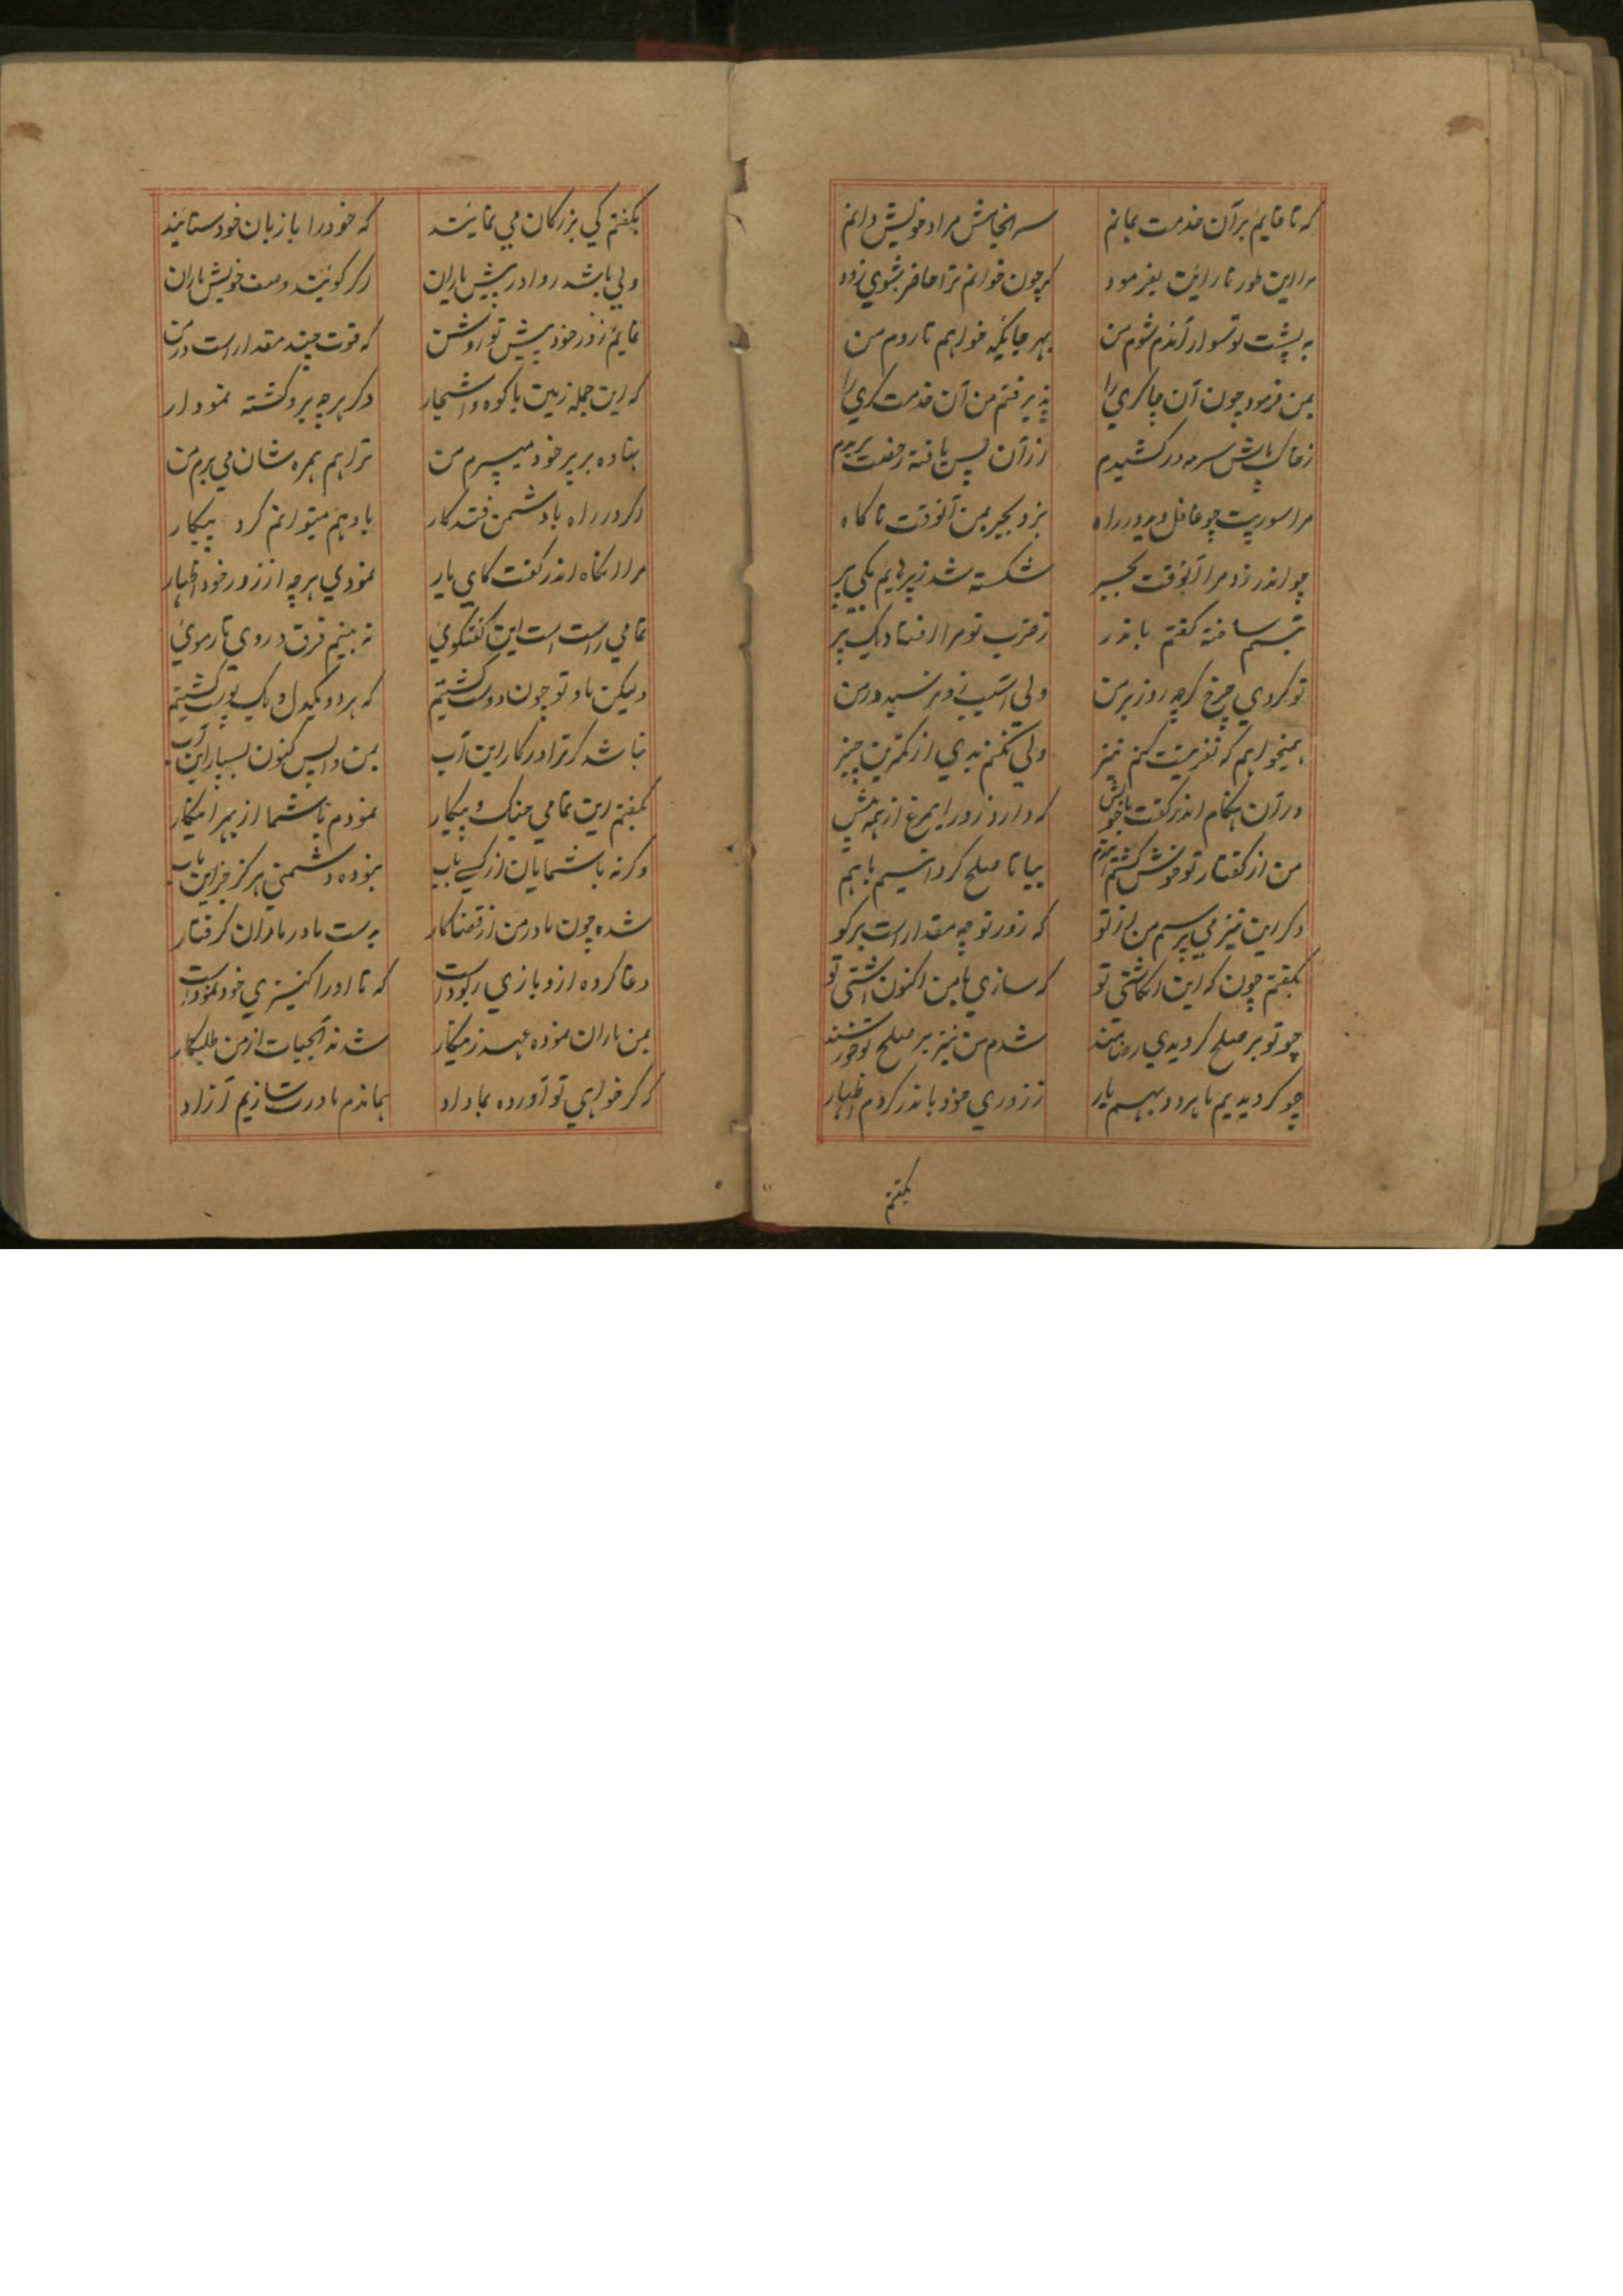 که تا قایم بر آن خدمت بمانم سر انجامش مراد خویش دانم
مرا این طور نارایت بفرمود که چون خوانم ترا حاضر شوی زود
به پشت تو سوار آندم شوم من بهر جائیکه خواهم تا روم من
بمن فرمود چون آن چاکری را پذیرفتم من آن خدمت گری را
ز خاک پاش سرمه در کشیدم از آن پس یافته رخصت پریدم
مرا سورپت چو غافل دید در راه بزد بجر بمن آنوقت ناگاه
چو اندر زد مرا آنوقت بجر شکسته شد ز پرهایم یکی پر
تبسم ساخته گفتم باندر ز ضرب تو مرا افتاد یک پر
تو کردی چرخ گرچه زور بر من ولی آسیب نرسید در من
همیخواهم که نفرینت کنم نیز ولی نکنم بدی از کمترین چیز
در آن هنگام اندر گفت با خویش که دارد زور این مرغ از همه بیش
من از گفتار تو خوش گشتم ایندم بیا تا صلح گردانیم باهم
دگر این نیز می پرسم من از تو که زور تو چه مقدار است برگو
بگفتم چون که این انگاشتی تو که سازی با من اکنون آشتی تو
چو تو بر صلح گردیدی رضامند شدم من نیز بر صلح تو خورسند
چو گردیدیم ما هر دو بهم یار ز زوری خود باندر کردم اظهار
بگفتم
بگفتم کی بزرگان می نمایند که خود را با زبان خود ستایند
ولی باشد روا در پیش یاران گر گویند وصف خویش یاران
نمایم زور خود پیش تو روشن که قوت چند مقدار است در من
که این جمله زمین با کوه و اشجار دگر هرچه برو گشته نمودار
نهاده بر پر خود میبرم من ترا هم همره شان می برم من
اگر در راه با دشمن فتد کار باو هم میتوانم کرد پیکار
مرا آنگاه اندر گفت کای یار نمودی هرچه از زور خود اظهار
تمامی راست است این گفتگوی نه بینم فرق در وی تار موی
ولیکن ما و تو چون دوست گشتیم که هر دو یکدل و یک پوست گشتیم
نباشد گر ترا در کار این آب بمن واپس کنون بسپار این آب
بگفتم این تمامی جنگ و پیکار نمودم با شما از بهر اینکار
وگرنه با شمایان از کسی باب نبوده دشمنی هرگز جز این باب
شده چون مادر من از قضا کار بدست مادر ماران گرفتار
دغا کرده ازو بازی ربود است که تا او را کنیزی خود نمود است
بمن ماران نموده عهد زینکار شدند آبحیات از من طلبکار
که گر خواهی تو آورده بما داد بماندم مادرت سازیم آزاد